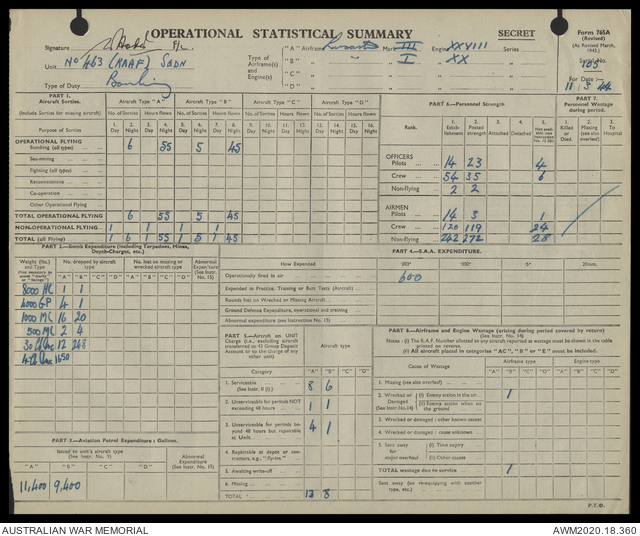 OPERATIONAL STATISTICAL SUMMARY
SECRET
Form 765A
(Revised)
(As Revised March, 1943.)
Serial No.
105
For Date :—
11 . 3 . 44
Signature F/L.
Unit No 463 (RAAF) Sqdn
Type of Duty Bombing
Type of Airframe(s) and Engine(s):
"A" Airframe Lancaster Mark III Engine XXVIII Series
"B" " " I " XX
"C"
"D"
PART 1.
Aircraft Sorties.
(Include Sorties for missing aircraft)
Aircraft Type "A" Aircraft Type "B" Aircraft Type "C" Aircraft Type "D"
No. of Sorties Hours flown No. of Sorties Hours flown No. of Sorties Hours flown No. of Sorties Hours flown
Purpose of Sorties
1. Day 2. Night 3. Day 4. Night 5. Day 6. Night 7. Day 8. Night 9. Day 10. Night 11. Day 12. Night 13. Day 14. Night 15. Day 16. Night
OPERATIONAL FLYING
Bombing (all types) 6 55 5 45
Sea-mining
Fighting (all types)
Reconnaissance
Co-operation
Other Operational Flying
TOTAL OPERATIONAL FLYING 6 55 5 45
NON-OPERATIONAL FLYING 1 1 1 1
TOTAL (all Flying) 1 6 1 55 1 5 1 45
PART 6.—Personnel Strength
Rank.
1. Establishment 2. Posted strength 3. Attached 4. Detached 5.
OFFICERS
Pilots 14 23 4
Crew 54 35 6
Non-flying 2 2
AIRMEN
Pilots 14 3 1
Crew 120 119 24
Non-flying 242 272 28
PART 7.
Personnel Wastage during period.
1. Killed or Died. 2. Missing (see also over) 3. To Hospital
PART 2.—Bomb Expenditure (including Torpedoes, Mines, Depth-Charges, etc.)
Weight (lbs.) and Type
No. dropped by aircraft type
No. lost on missing or wrecked aircraft type
Abnormal Expenditure (See Instr. No. 15)
"A" "B" "C" "D" "A" "B" "C" "D"
8000 HC 1 1
4000 GP 4 1
1000 MC 16 20
500 MC 2 4
30 lb Inc 12 248
4 lb Inc 1650
PART 3.—Aviation Petrol Expenditure : Gallons.
Issued to unit's aircraft type
(See Instr. No. 9)
Abnormal Expenditure
(See Instr. No. 15)
"A" "B" "C" "D"
11,400 9,400
PART 4.—S.A.A. EXPENDITURE.
How Expended ·303" ·300" ·5" 20mm.
Operationally fired in air 600
Expended in Practice, Training or Butt Tests (Aircraft)
Rounds lost on Wrecked or Missing Aircraft
Ground Defence Expenditure, operational and training
Abnormal expenditure (see Instruction No. 15)
PART 5.—Aircraft on UNIT Charge (i.e., excluding aircraft transferred to 43 Group Deposit Account or to the charge of any other unit)
Aircraft type
Category "A" "B" "C" "D"
1. Serviceable (See Instr. II (i).) 8 6
2. Unserviceable for periods NOT exceeding 48 hours 1 1
3. Unserviceable for periods beyond 48 hours but repairable at Unit. 4 1
4. Repairable at depot or contractors, e.g., "fly-ins."
5. Awaiting write-off
6. Missing
TOTAL 13 8
PART 8.—Airframe and Engine Wastage (arising during period covered by return)
(See Instr. No. 14)
Notes : (i) The R.A.F. Number allotted to any aircraft reported as wastage must be shown in the table printed on reverse.
(ii) All aircraft placed in categories "AC", "B" or "E" must be included.
Cause of Wastage Airframe type Engine type
"A" "B" "C" "D" "A" "B" "C" "D"
1. Missing (see also overleaf)
2. Wrecked or Damaged (See Instr. No.14) (i) Enemy action in the air 1
(ii) Enemy action when on the ground
3. Wrecked or damaged : other known causes
4. Wrecked or damaged : cause unknown
5. Sent away for major overhaul (i) Time expiry
(ii) Other causes
TOTAL wastage due to service 1
Sent away (re-equipping with another type, etc.)
P.T.O.
AUSTRALIAN WAR MEMORIAL
AWM2020.18.360